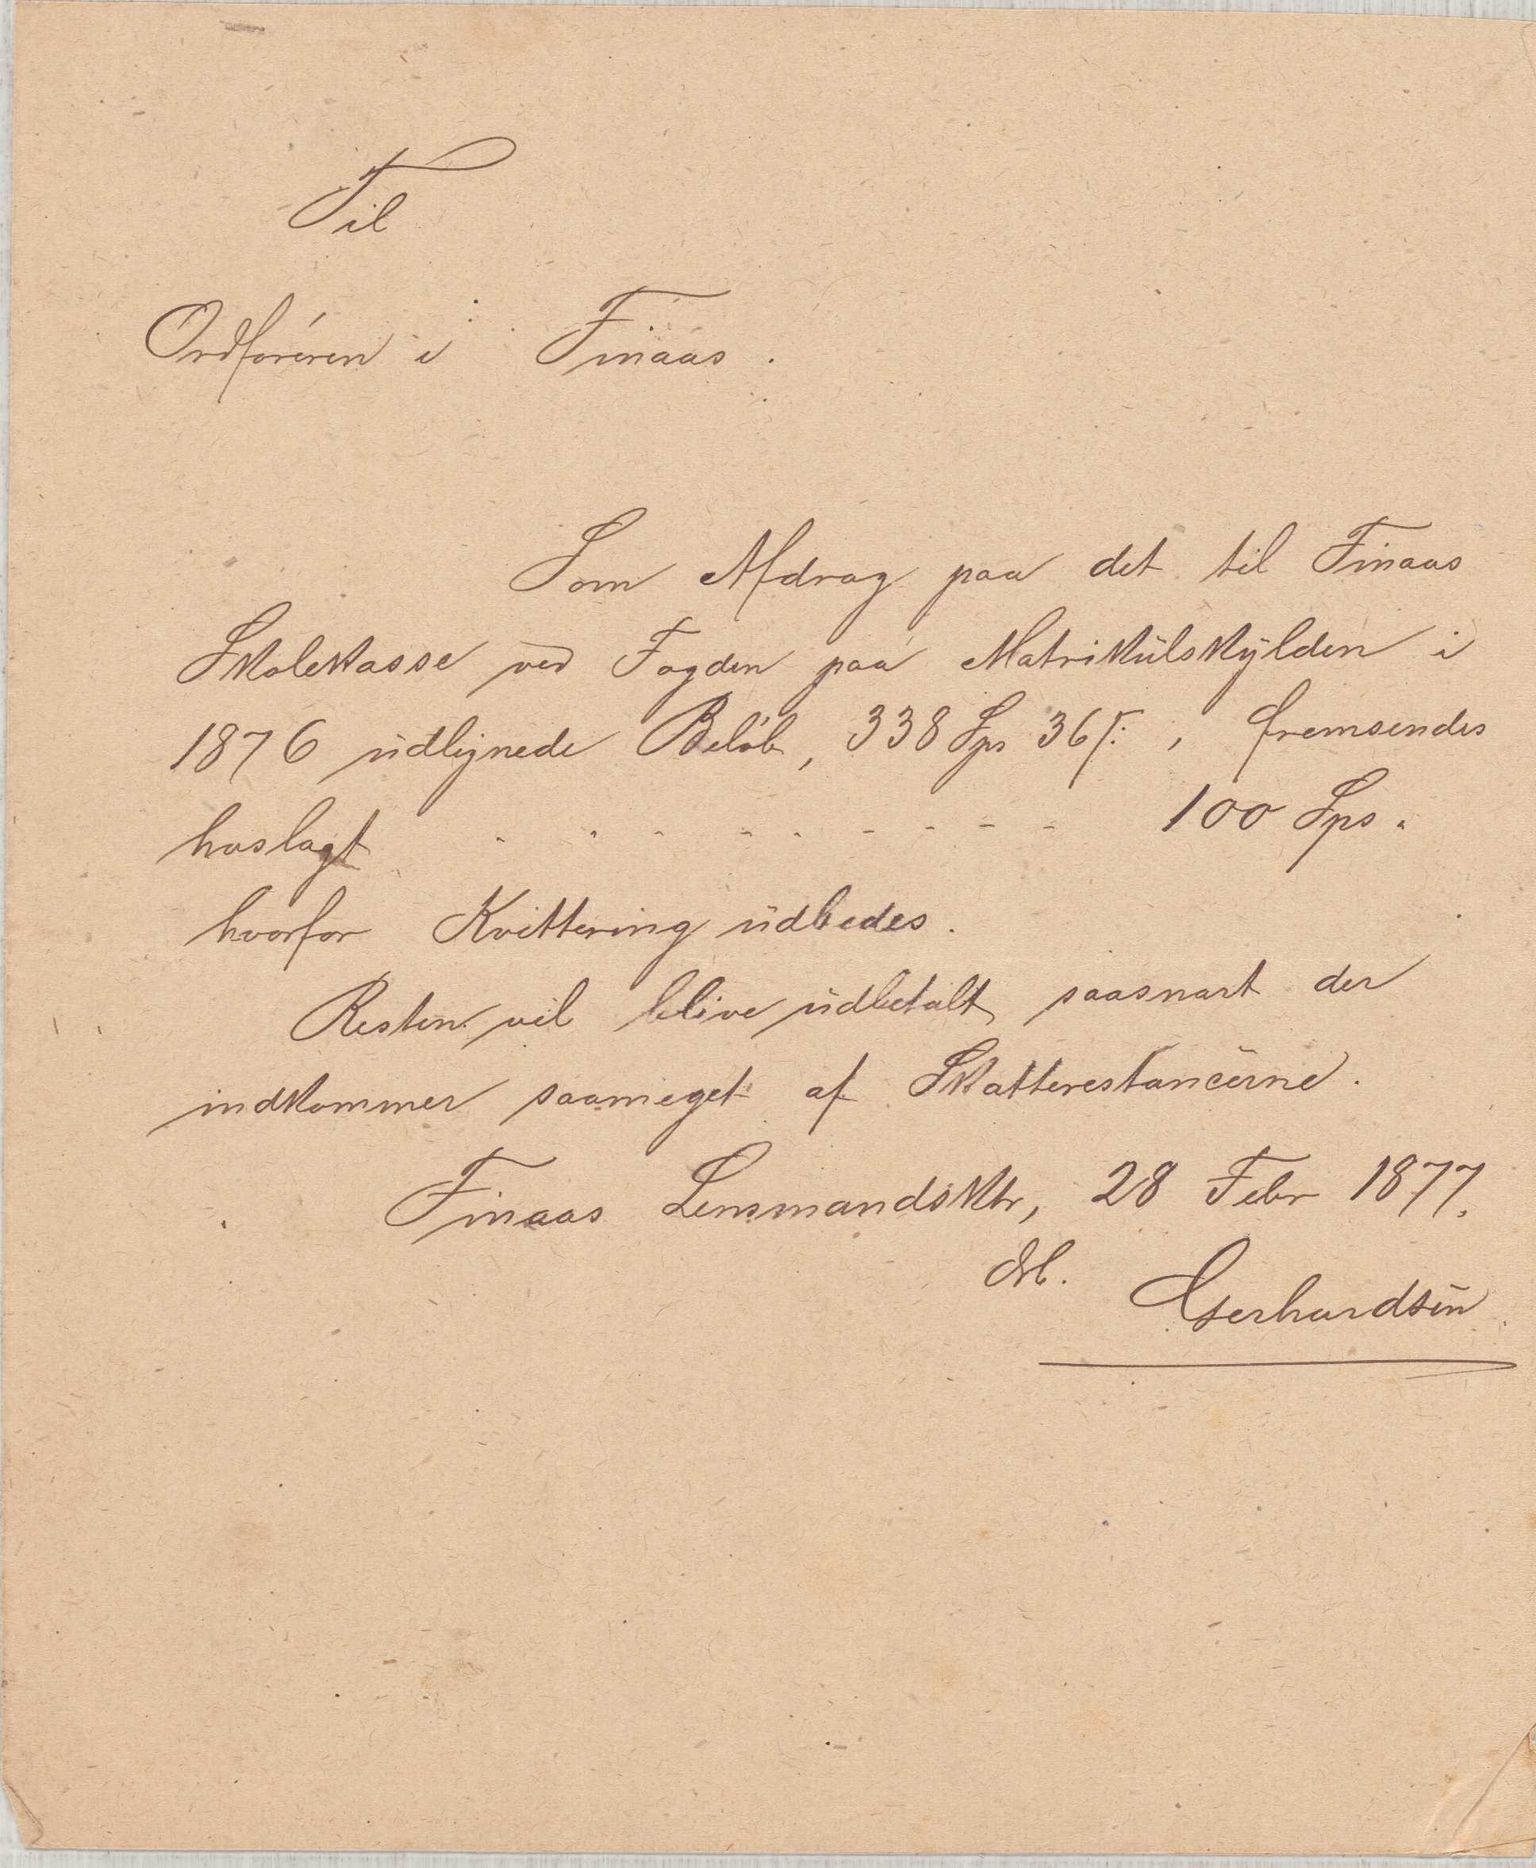 Til
Ordføreren i Finaas.
Som Afdrag paa det til Finaas
Skolekasse ved Fogden paa Matrikülskÿlden i
1876 üdlignede Beløb, 338 Sps 36 ſ: , fremsendes
hoslagt - - - - - - - - - 100 Sps.
hvorfor Kvittering üdbedes.
Resten vil blive üdbetalt saasnart der
indkommer saameget af Skatterestancerne.
Finaas Lensmandsktr, 28 Febr 1877.
Gerhardsen